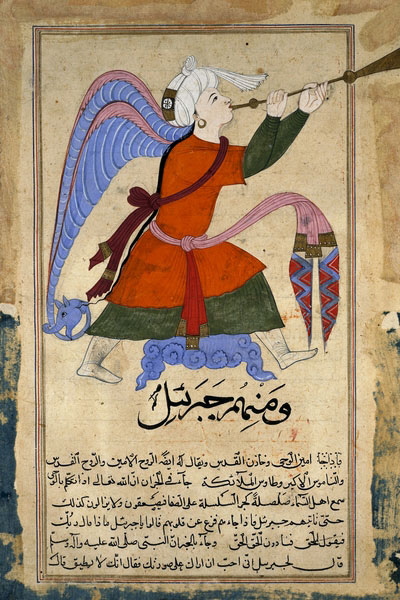 ومنهم جبرئيل
امين الوحي وخازن القدس ويقال له ايضا الروح الامين والروح القدس
والناموس الاكبر وطاوس الملائكة جاء في الخبر ان الله تعالى اذا تكلم بالوحي
سمع اهل السماء صلصلة كجر السلسلة على الصفا فيصعقون ولا يزالون كذلك
حتى يأتيهم جبرئيل فاذا جاءهم فزع عن قلوبهم قالوا يا جبرئيل ماذا قال ربك
فيقول الحق فينادون الحق الحق وجاء الخبر ان النبي صلى الله عليه وآله وسلم
قال لجبرئيل اني احب ان اراك على صورتك فقال انك لا تطيق قال